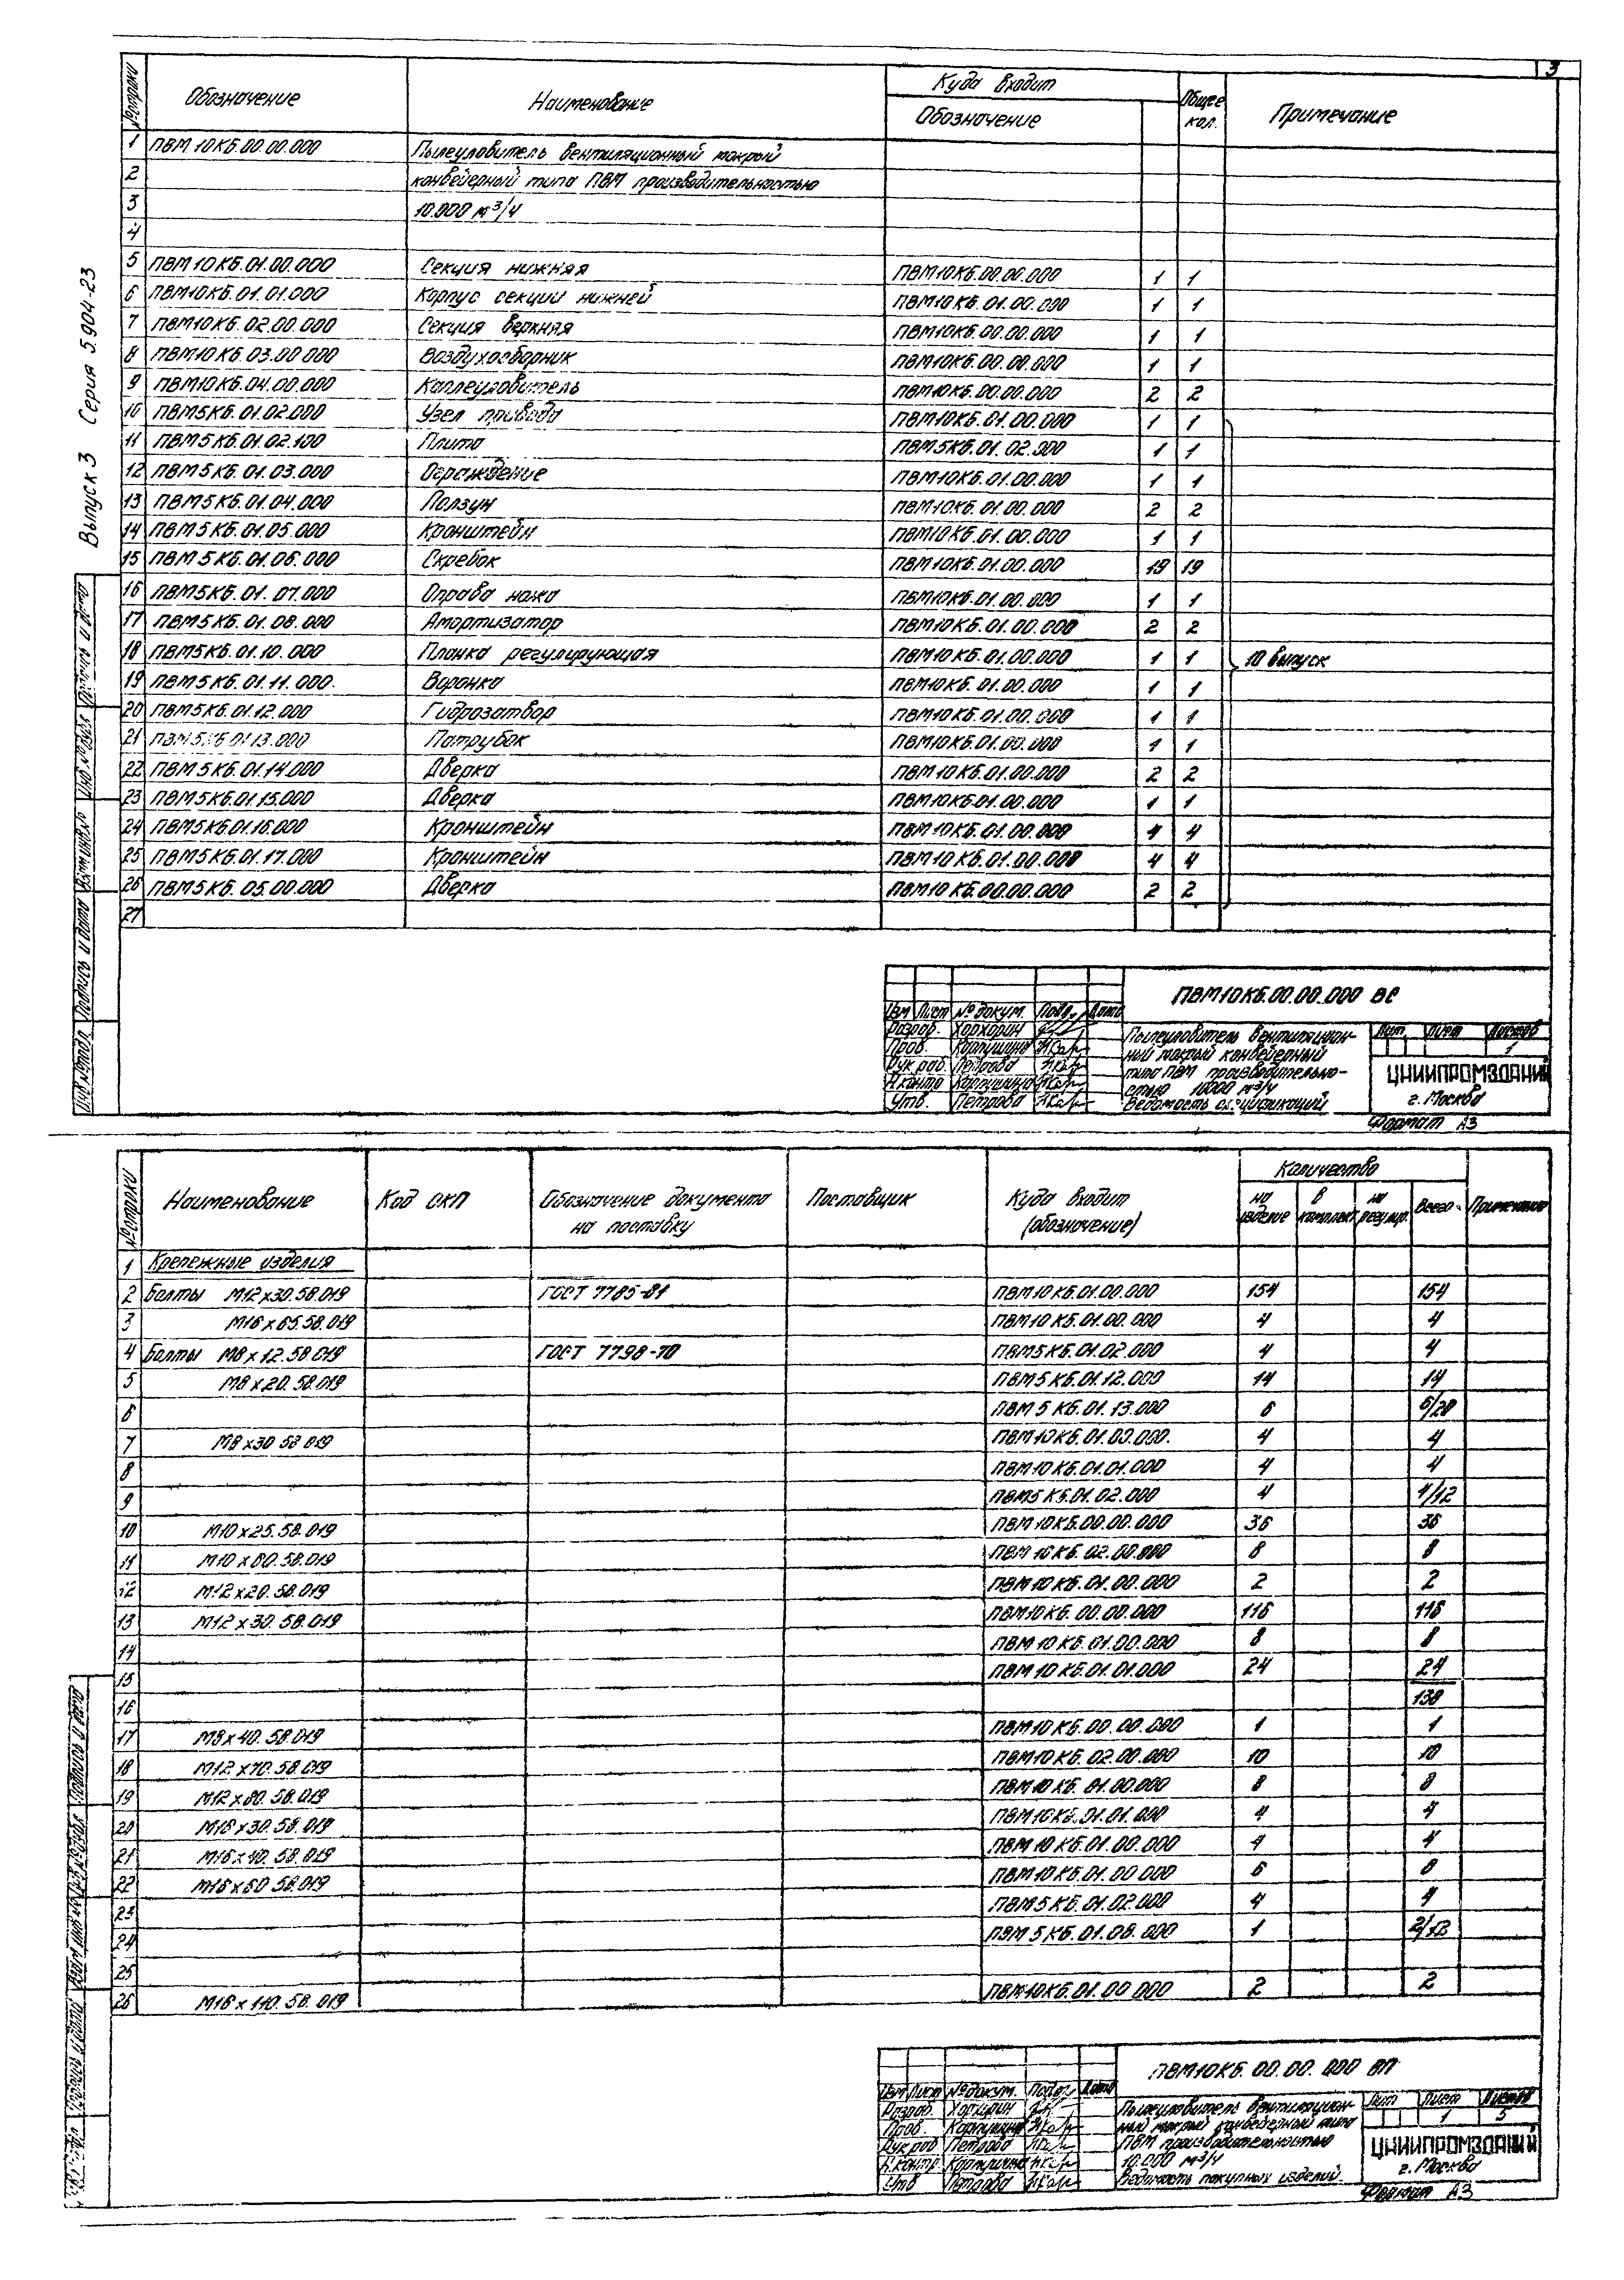 3
Выпуск 3 Серия 5.904-23
№ строки Обозначение Наименование Куда входит Общее кол. Примечание
Обозначение
1 ПВМ10КБ.00.00.000 Пылеуловитель вентиляционный мокрый
2 конвейерный типа ПВМ производительностью
3 10.000 м³/ч
4
5 ПВМ10КБ.01.00.000 Секция нижняя ПВМ10КБ.00.00.000 1 1
6 ПВМ10КБ.01.01.000 Корпус секции нижней ПВМ10КБ.01.00.000 1 1
7 ПВМ10КБ.02.00.000 Секция верхняя ПВМ10КБ.00.00.000 1 1
8 ПВМ10КБ.03.00.000 Воздухосборник ПВМ10КБ.00.00.000 1 1
9 ПВМ10КБ.04.00.000 Каплеуловитель ПВМ10КБ.00.00.000 2 2
10 ПВМ5КБ.01.02.000 Узел привода ПВМ10КБ.01.00.000 1 1
11 ПВМ5КБ.01.02.100 Плита ПВМ5КБ.01.02.000 1 1
12 ПВМ5КБ.01.03.000 Ограждение ПВМ10КБ.01.00.000 1 1
13 ПВМ5КБ.01.04.000 Ползун ПВМ10КБ.01.00.000 2 2
14 ПВМ5КБ.01.05.000 Кронштейн ПВМ10КБ.01.00.000 1 1
15 ПВМ5КБ.01.06.000 Скребок ПВМ10КБ.01.00.000 19 19
16 ПВМ5КБ.01.07.000 Оправа ножа ПВМ10КБ.01.00.000 1 1
17 ПВМ5КБ.01.08.000 Амортизатор ПВМ10КБ.01.00.000 2 2
18 ПВМ5КБ.01.10.000 Планка регулирующая ПВМ10КБ.01.00.000 1 1 10 выпуск
19 ПВМ5КБ.01.11.000. Воронка ПВМ10КБ.01.00.000 1 1
20 ПВМ5КБ.01.12.000 Гидрозатвор ПВМ10КБ.01.00.000 1 1
21 ПВМ5КБ.01.13.000 Патрубок ПВМ10КБ.01.00.000 1 1
22 ПВМ5КБ.01.14.000 Дверка ПВМ10КБ.01.00.000 2 2
23 ПВМ5КБ.01.15.000 Дверка ПВМ10КБ.01.00.000 1 1
24 ПВМ5КБ.01.16.000 Кронштейн ПВМ10КБ.01.00.000 4 4
25 ПВМ5КБ.01.17.000 Кронштейн ПВМ10КБ.01.00.000 4 4
26 ПВМ5КБ.05.00.000 Дверка ПВМ10КБ.00.00.000 2 2
27
ПВМ10КБ.00.00.000 ВС
Изм Лист № докум. Подп. Дата
Разраб. Хархорин
Пров. Карпушина
Рук раб Петрова
Н.контр Карпушина
Утв. Петрова
Пылеуловитель вентиляцион-
ный мокрый конвейерный
типа ПВМ производительно-
стью 10000 м³/ч
Ведомость спецификаций
Лит. Лист Листов
1
ЦНИИПРОМЗДАНИЙ
г. Москва
Формат А3
Инв № подл. Подпись и дата Взам инв. № Инв. № дубл. Подпись и дата
№ строки Наименование Код ОКП Обозначение документа на поставку Поставщик Куда входит (обозначение) Количество Примечание
на изделие в комплект на регулир. Всего
1 Крепежные изделия
2 Болты М12х30.58.019 ГОСТ 7785-81 ПВМ10КБ.01.00.000 154 154
3 М16х65.58.019 ПВМ10КБ.01.00.000 4 4
4 Болты М8х12.58.019 ГОСТ 7798-70 ПВМ5КБ.01.02.000 4 4
5 М8х20.58.019 ПВМ5КБ.01.12.000 14 14
6 ПВМ5КБ.01.13.000 6 6/20
7 М8х30.58.019 ПВМ10КБ.01.00.000. 4 4
8 ПВМ10КБ.01.01.000 4 4
9 ПВМ5КБ.01.02.000 4 4/12
10 М10х25.58.019 ПВМ10КБ.00.00.000 36 36
11 М10х80.58.019 ПВМ10КБ.02.00.000 8 8
12 М12х20.58.019 ПВМ10КБ.01.00.000 2 2
13 М12х30.58.019 ПВМ10КБ.00.00.000 116 116
14 ПВМ10КБ.01.00.000 8 8
15 ПВМ10КБ.01.01.000 24 24
16 138
17 М8х40.58.019 ПВМ10КБ.00.00.000 1 1
18 М12х70.58.019 ПВМ10КБ.02.00.000 10 10
19 М12х80.58.019 ПВМ10КБ.01.00.000 8 8
20 М16х30.58.019 ПВМ10КБ.01.01.000 4 4
21 М16х40.58.019 ПВМ10КБ.01.00.000 4 4
22 М16х60.58.019 ПВМ10КБ.01.00.000 6
23 ПВМ5КБ.01.02.000 4 4
24 ПВМ5КБ.01.08.000 1
25
26 М16х110.58.019 ПВМ10КБ.01.00.000 2 2
ПВМ10КБ.00.00.000 ВП
Изм Лист № докум. Подп. Дата
Разраб. Хархорин
Пров. Карпушина
Рук раб Петрова
Н.контр Карпушина
Утв Петрова
Пылеуловитель вентиляцион-
ный мокрый конвейерный типа
ПВМ производительностью
10.000 м³/ч
Ведомость покупных изделий.
Лит Лист Листов
1 5
ЦНИИПРОМЗДАНИЙ
г. Москва
Формат А3